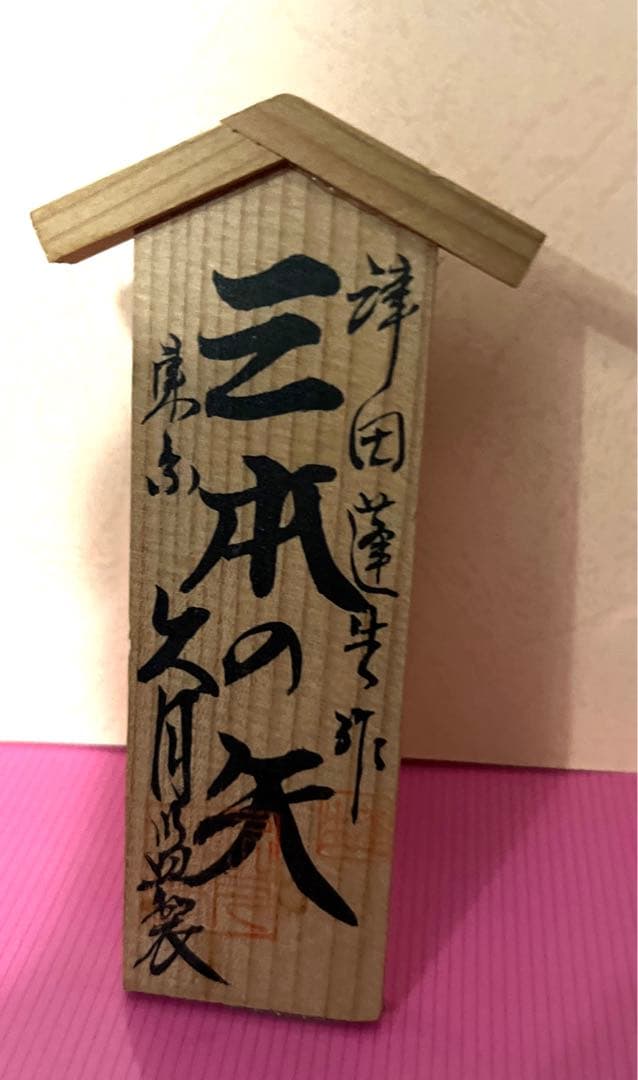 津田蓬生作
三本の矢
東京 久月謹製